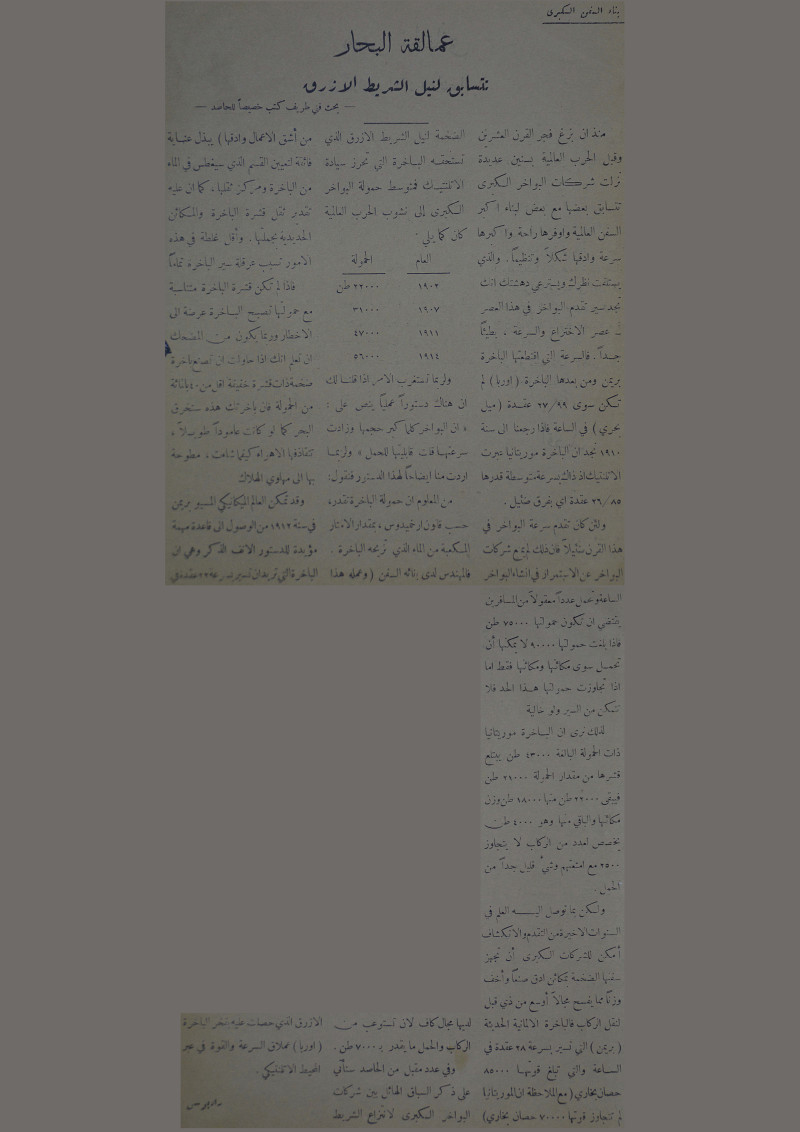 بناء السفن الكبرى
عمالقة البحار
تتسابق لنيل الشريط الازرق
— بحث في طريف كتب خصيصاً للحاصد —
منذ ان بزغ فجر القرن العشرين
وقبل الحرب العالمية بسنين عديدة
نزلت شركات البواخر الكبرى
تتسابق بعضها مع بعض لبناء اكبر
السفن العالمية واوفرها راحة واكبرها
سرعة وادقها شكلاً وتنظيماً . والذي
يستلفت نظرك ويسترعي دهشتك انك
تجد سير تقدم البواخر في هذا العصر
عصر الاختراع والسرعة ، بطيئاً
جداً . فالسرعة التي اقتطعتها الباخرة
بريمن ومن بعدها الباخرة ( اوربا ) لم
تكن سوى ٢٧/٩٩ عقدة ( ميل
بحري ) في الساعة فاذا رجعنا الى سنة
١٩١٠ نجد ان الباخرة موريتانيا عبرت
الاتلنتيك اذ ذاك بسرعة متوسطة قدرها
٢٦/٨٥ عقدة اي بفرق ضئيل .
ولئن كان تقدم سرعة البواخر في
هذا القرن ضئيلاً فان ذلك لم يمنع شركات
البواخر عن الاستمرار في انشاء البواخر
الضخمة لنيل الشريط الازرق الذي
تستحقه الباخرة التي تحرز سيادة
الاتلنتيك فمتوسط حمولة البواخر
الكبرى الى نشوب الحرب العالمية
كان كما يلي .
العام الحمولة
١٩٠٢ ٢٢٠٠٠ طن
١٩٠٧ ٣١٠٠٠
١٩١١ ٤٧٠٠٠
١٩١٤ ٥٦٠٠٠
ولربما تستغرب الامر اذا قلنا لك
ان هناك دستوراً عملياً ينص على :
« ان البواخر كلما كبر حجمها وزادت
سرعتها قلت قابليتها للحمل » ولربما
اردت منا ايضاحاً لهذا الدستور فنقول:
من المعلوم ان حمولة الباخرة تقدر،
حسب قانون ارخميدوس ، بمقدار الامتار
المكعبة من الماء الذي تزيحه الباخرة .
فالمهندس لدى بنائه السفن ( وعمله هذا
من أشق الاعمال وادقها ) يبذل عناية
فائقة لتعيين القسم الذي سيغطس في الماء
من الباخرة ومركز ثقلها ، كما ان عليه
تقدير ثقل قشرة الباخرة والمكائن
الحديدية بجملتها . وأقل غلطة في هذه
الامور تسبب عرقلة سير الباخرة تماماً
فاذا لم تكن قشرة الباخرة متناسبة
مع حمولتها تصبح الباخرة عرضة الى
الاخطار وربما يكون من المضحك
ان تعلم انك اذا حاولت ان تصنع باخرة
ضخمة ذات قشرة خفيفة اقل من ٤٠ بالمائة
من الحمولة فان باخرتك هذه ستخرق
البحر كما لو كانت عاموداً طويلاً ،
تتقاذفها الاهواء كيفما شاءت ، مطوحة
بها الى مهاوي الهلاك
وقد تمكن العالم الميكانيكي المسيو بريمن
في سنة ١٩١٢ من الوصول الى قاعدة مهمة
مؤيدة للدستور الانف الذكر وهي ان
الباخرة التي تريد ان تسير بسرعة ٢٦ عقدة في
الساعة وتحمل عدداً معقولاً من المسافرين
يقتضي ان تكون حمولتها ٧٥٠٠٠ طن
فاذا بلغت حمولتها ٩٠٠٠٠ لا يمكنها أن
تحمل سوى مكائنها ومكائنها فقط اما
اذا تجاوزت حمولتها هذا الحد فلا
تتمكن من السير ولو خالية
لذلك نرى ان الباخرة موريتانيا
ذات الحمولة البالغة ٤٣٠٠٠ طن يبتلع
قشرها من مقدار الحمولة ٢١٠٠٠ طن
فيبقى ٢٢٠٠٠ طن منها ١٨٠٠٠ طن وزن
مكائنها والباقي منها وهو ٤٠٠٠ طن
يخصص لعدد من الركاب لا يتجاوز
٢٥٠٠ مع امتعتهم وشيء قليل جداً من
الحمل .
ولكن بما توصل اليه العلم في
السنوات الاخيرة من التقدم والانكشاف
أمكن للشركات الكبرى أن تجهز
سفنها الضخمة بمكائن ادق صنعاً وأخف
وزناً مما يفسح مجالاً أوسع من ذي قبل
لنقل الركاب فالباخرة الالمانية الحديثة
( بريمن ) التي تسير بسرعة ٢٨ عقدة في
الساعة والتي تبلغ قوتها ٨٥٠٠٠
حصان بخاري ( مع الملاحظة ان الموريتانيا
لم تتجاوز قوتها ٧٠٠٠٠ حصان بخاري )
لديها مجال كاف لان تستوعب من
الركاب والحمل ما يقدر بـ ٧٠٠٠ طن .
وفي عدد مقبل من الحاصد سنأتي
على ذكر السباق الهائل بين شركات
البواخر الكبرى لانتزاع الشريط
الازرق الذي حصلت عليه بفخر الباخرة
( اوربا ) عملاق السرعة والقوة في عبر
المحيط الاتلنتيكي .